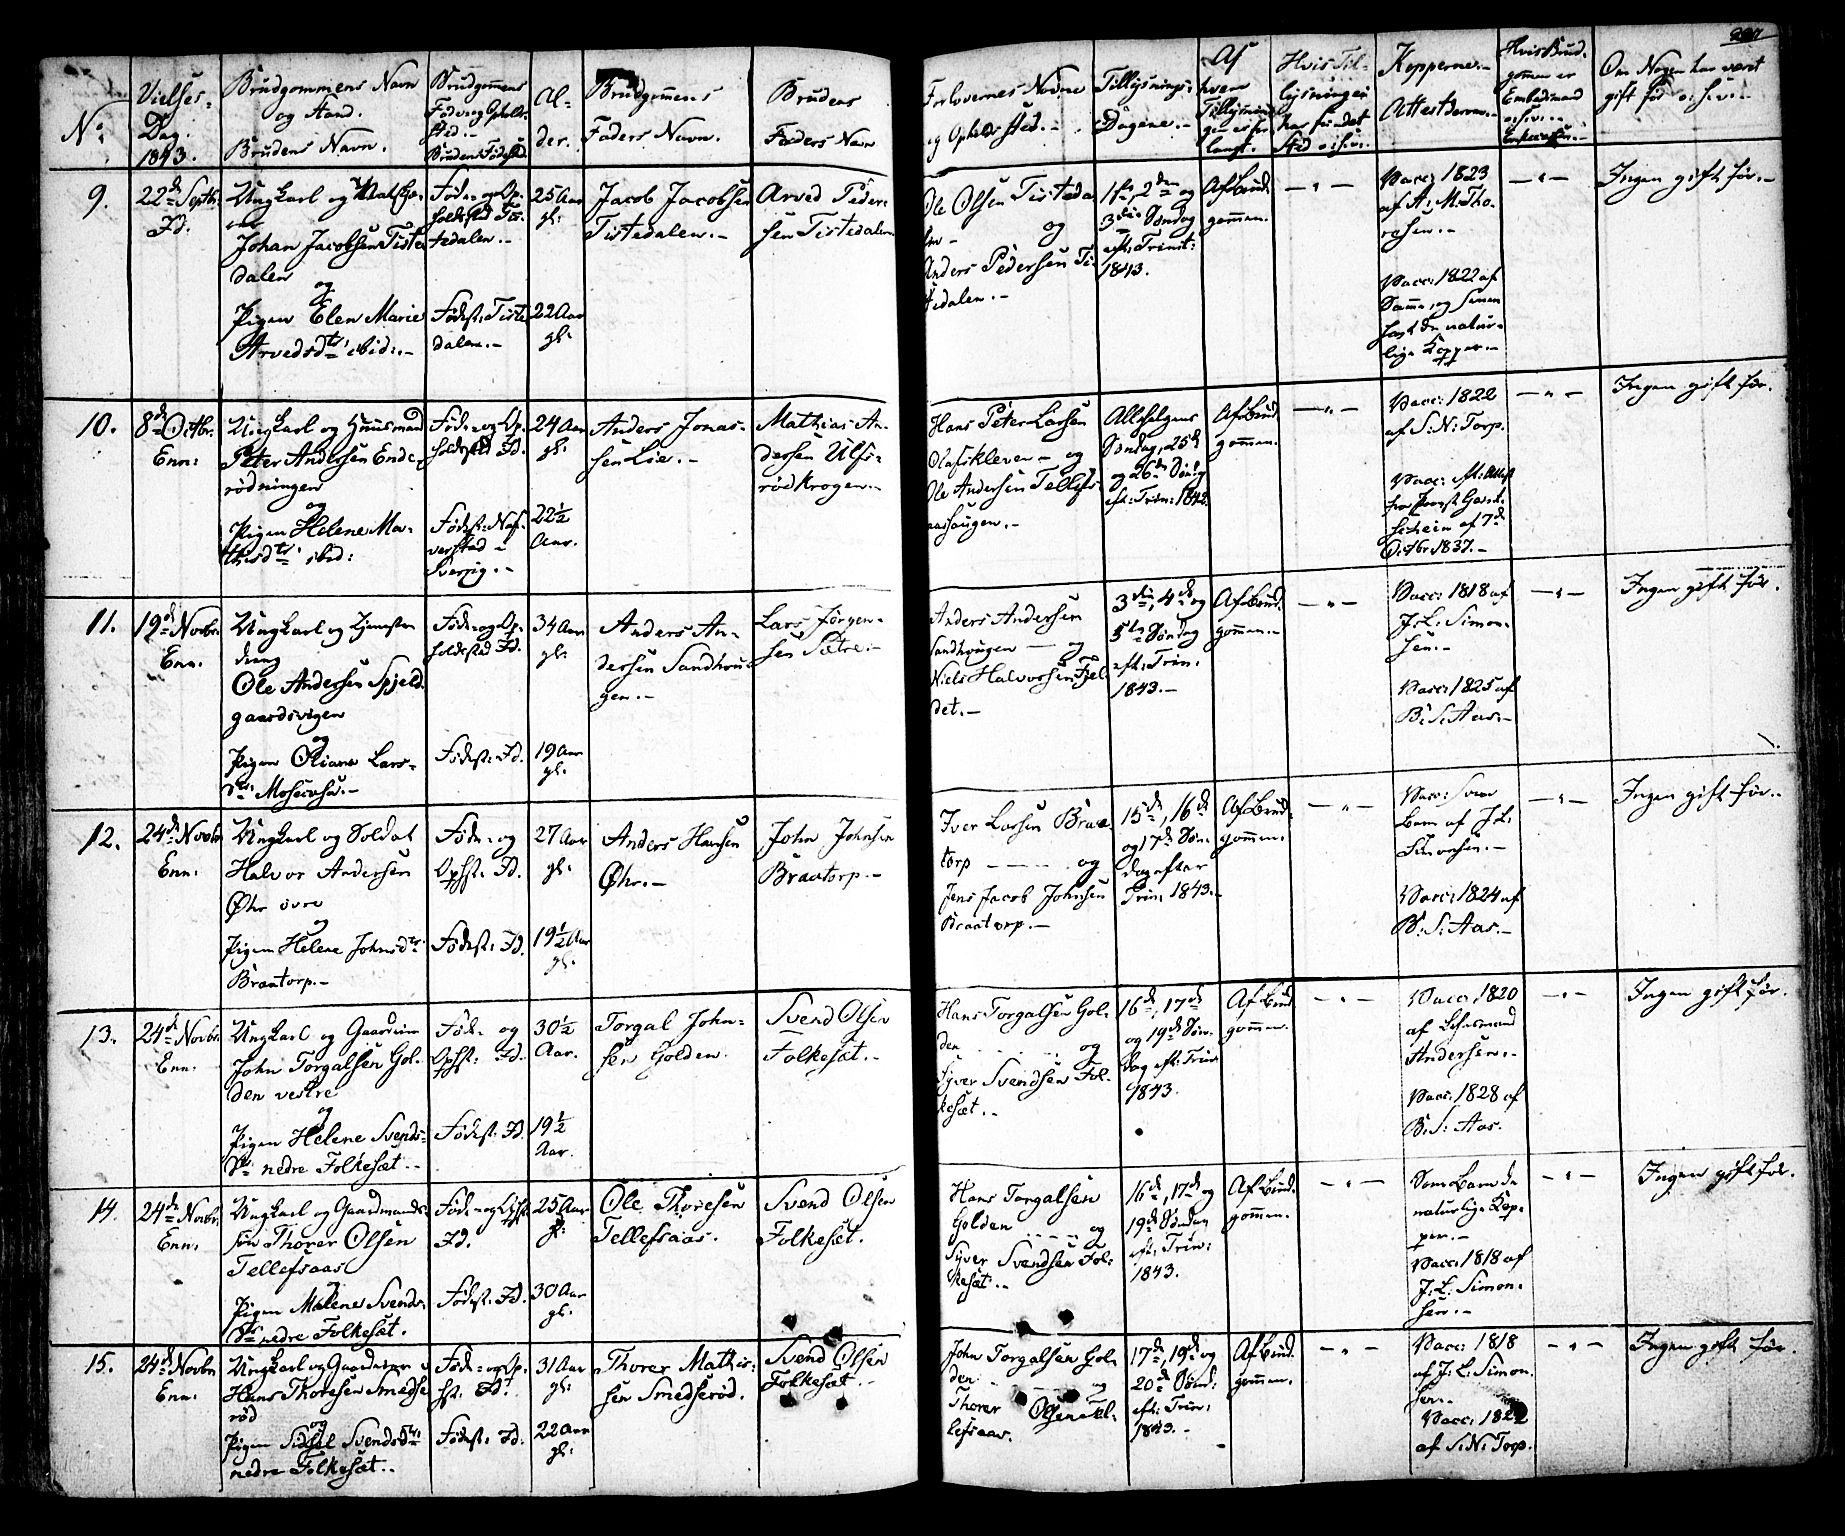 207
No:
Vielses-
Dag.
1843.
Brudgommens Navn
og Stand.
Brudens Navn.
Brudgommens
Føde og Opholds-
sted.
Brudens Fødested
Al-
der.
Brudgommens
Faders Navn.
Brudens
Faders Navn
Forlovernes Navne
og Opholdssted.
Tillysnings-
Dagene.
Af
hvem
Tillysnin-
gen er for-
langt.
Hvis Til-
lysningen
har fundet
Sted o:s:v:
Kopperne
Attesterne.
Hvis Brud-
gommen er
Embedsmand
o:s:v:
Om Nogen har været
gift før o:s:v:
9.
22de Septbr.
Fd.
Ungkarl og
Johan Jacobsen Tiste-
dalen
og
Pigen Elen Marie
Arvedsdtr ibid:
Føde- og Op-
holdssted Tis-
tedalen.
Fødest: Tiste-
dalen.
25 Aar
gl:
22 Aar
gl:
Jacob Jacobsen
Tistedalen.
Arved Peder-
sen Tistedalen
Ole Olsen Tisteda-
len og
Anders Pedersen Ti-
stedalen.
1ste, 2den og
3die Søndag
eft: Trinit:
1843.
Af Brud-
gommen.
Vacc: 1823
af A: M: Tho-
resen.
Vacc: 1822 af
Samme, og senere
havt de natur-
lige Kopper.
Ingen gift før.
10.
8de Octbr.
Enn:
Ungkarl og Huusmand
Peter Andersen Ende-
rødningen
og
Pigen Helene Ma-
thisdtr ibid:
Føde- og Op-
holdssted Fd.
Fødest: Naf-
verstad i
Sverrig.
24 Aar
gl:
22½
Aar.
Anders Jonas-
sen Lie.
Mathias An-
dersen Ulfs-
rødkrogen.
Hans Peter Larsen
Olafskleven og
Ole Andersen Tellefs-
aashaugen.
Allehelgens
Søndag, 25de
og 26de Søndg
eft: Trin: 1842.
Af Brud-
gommen.
Vacc: 1822
af S: N: Torp.
Vacc: eft: Attest
fra Provst
af 7de
Octbr 1837.
Ingen gift før.
11.
19de Novbr.
Enn:
Ungkarl og Tjeneste-
dreng
Ole Andersen Spjeld-
gaardsvigen
og
Pigen Oliane Lars-
dtr Mosecosa.
Føde- og Op-
holdssted Fd.
Fødest: Fd.
34 Aar
gl:
19 Aar
gl:
Anders An-
dersen Sandhou-
gen.
Lars Jørgen-
sen Sætre.
Anders Andersen
Sandhougen og
Niels Halvorsen Fjel-
det.
3die, 4de og
5te Søndag
eft: Trin:
1843.
Af Brud-
gommen.
Vacc: 1818 af
J: L: Simon-
sen.
Vacc: 1825 af
B: S: Aas.
Ingen gift før.
12.
24de Novbr
Enn:
Ungkarl og Soldat
Halvor Andersen
Øhr øvre
og
Pigen Helene Johnsdtr
Braatorp.
Føde- og
Ophst: Fd.
Fødest: Fd.
27 Aar
gl:
19½ Aar
gl:
Anders Hansen
Øhr.
John Johnsen
Braatorp.
Iver Larsen Braa-
torp og
Jens Jacob Johnsen
Braatorp.
15de, 16de
og 17de Søn-
dag efter
Trin: 1843.
Af Brud-
gommen.
Vacc: som
Barn af J: L:
Simonsen.
Vacc: 1824 af
B: S: Aas.
Ingen gift før.
13.
24de Novbr.
Enn:
Ungkarl og Gaardeier
John Torgalsen Gol-
den vestre
og
Pigen Helene Svends-
dtr nedre Folkesæt.
Føde- og
Ophst: Fd.
Fødest: Fd.
30½
Aar.
19½
Aar.
Torgal John-
sen Golden.
Svend Olsen
Folkesæt.
Hans Torgalsen Gol-
den og
Syver Svendsen Fol-
kesæt.
16de, 17de
og 19de Søn-
dag eft: Trin:
1843.
Af Brud-
gommen.
Vacc: 1820
af Lehnsmand
Andersen.
Vacc: 1828 af
B: S: Aas.
Ingen gift før.
14.
24de Novbr.
Enn:
Ungkarl og Gaardmands-
søn Thorer Olsen
Tellefsaas
og
Pigen Malene Svends-
dtr nedre Folkesæt.
Føde- og Ophst
Fd.
Fødest: Fd.
25 Aar
gl:
30 Aar
gl:
Ole Thoresen
Tellefsaas.
Svend Olsen
Folkesæt.
Hans Torgalsen
Golden og
Syver Svendsen Fol-
kesæt.
16de, 17de og
19de Søndag
eft: Trin:
1843.
Af Brud-
gommen.
Som Barn de
naturlige Kop-
per.
Vacc: 1818 af
J: L: Simon-
sen.
Ingen gift før.
15.
24de Novbr
Enn:
Ungkarl og Gaardeier
Hans Thoresen Smedse-
rød
og
Pigen Sidsel Svendsdtr
nedre Folkesæt.
Føde- og Op-
hst: Fd.
Fødest: Fd.
31 Aar
gl:
22 Aar
gl:
Thorer Mathis-
sen Smedserød.
Svend Olsen
Folkesæt.
John Torgalsen Gol-
den og
Thorer Olsen Tel-
lefsaas.
17de, 19de og
20de Sønd:
eft: Trin:
1843.
Af Brud-
gommen.
Vacc: 1818
af J: L: Simon-
sen.
Vacc: 1822
af S: N: Torp.
Ingen gift før.